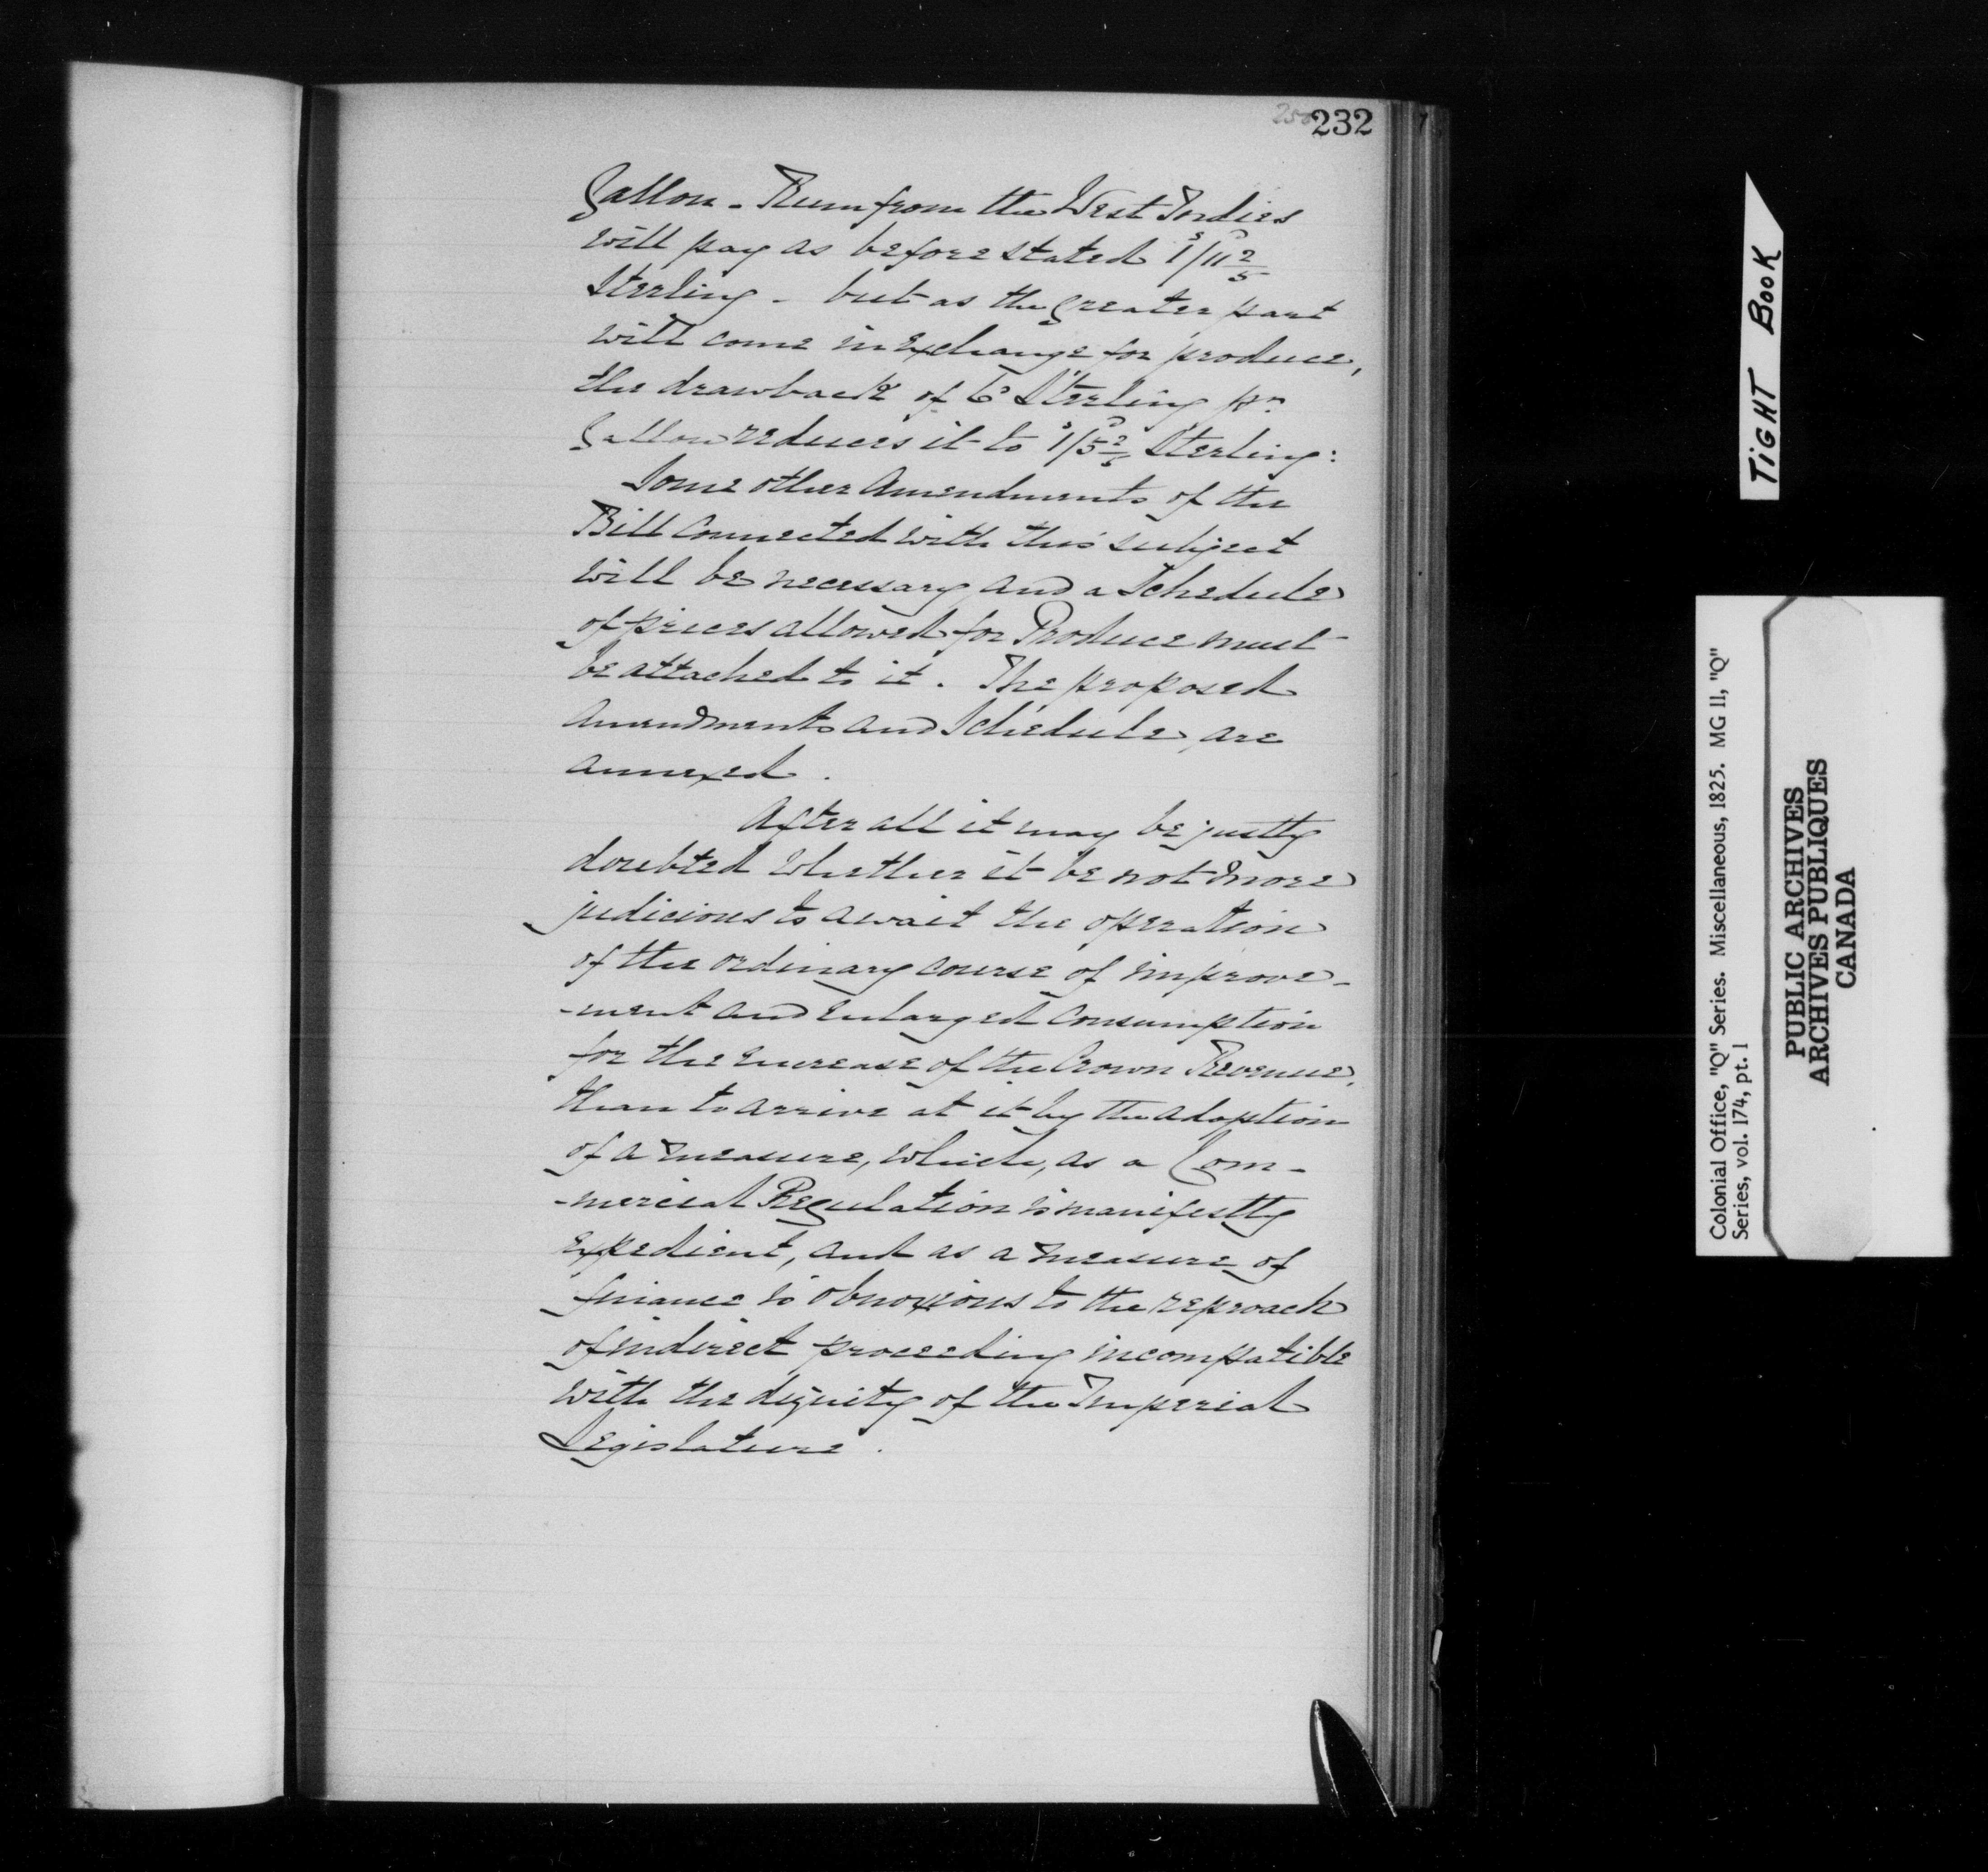 232
Gallon - Rum from the West Indies
will pay as before stated 1ˢ/11ᴰ 2/5
Sterling - but as the greater part
will come in exchange for produce,
the drawback of 6ᴰ Sterling pʳ
Gallon reduces it to 1ˢ/5ᴰ 2/5 Sterling:
Some other Amendments of the
Bill Connected with this subject
will be necessary and a Schedule
of prices allowed for Produce must
be attached to it. The proposed
Amendments and Schedule are
annexed.
After all it may be justly
doubted whether it be not more
judicious to await the operation
of the ordinary course of improve-
-ment and enlarged Consumption
for the increase of the Crown Revenue,
than to arrive at it by the adoption
of a measure, which, as a Com-
-mercial Regulation is manifestly
expedient, and as a measure of
finance is obnoxious to the reproach
of indirect proceeding incompatible
with the dignity of the Imperial
Legislature.
TIGHT BOOK
Colonial Office, "Q" Series. Miscellaneous, 1825. MG 11, "Q"
Series, vol. 174, pt. 1
PUBLIC ARCHIVES
ARCHIVES PUBLIQUES
CANADA